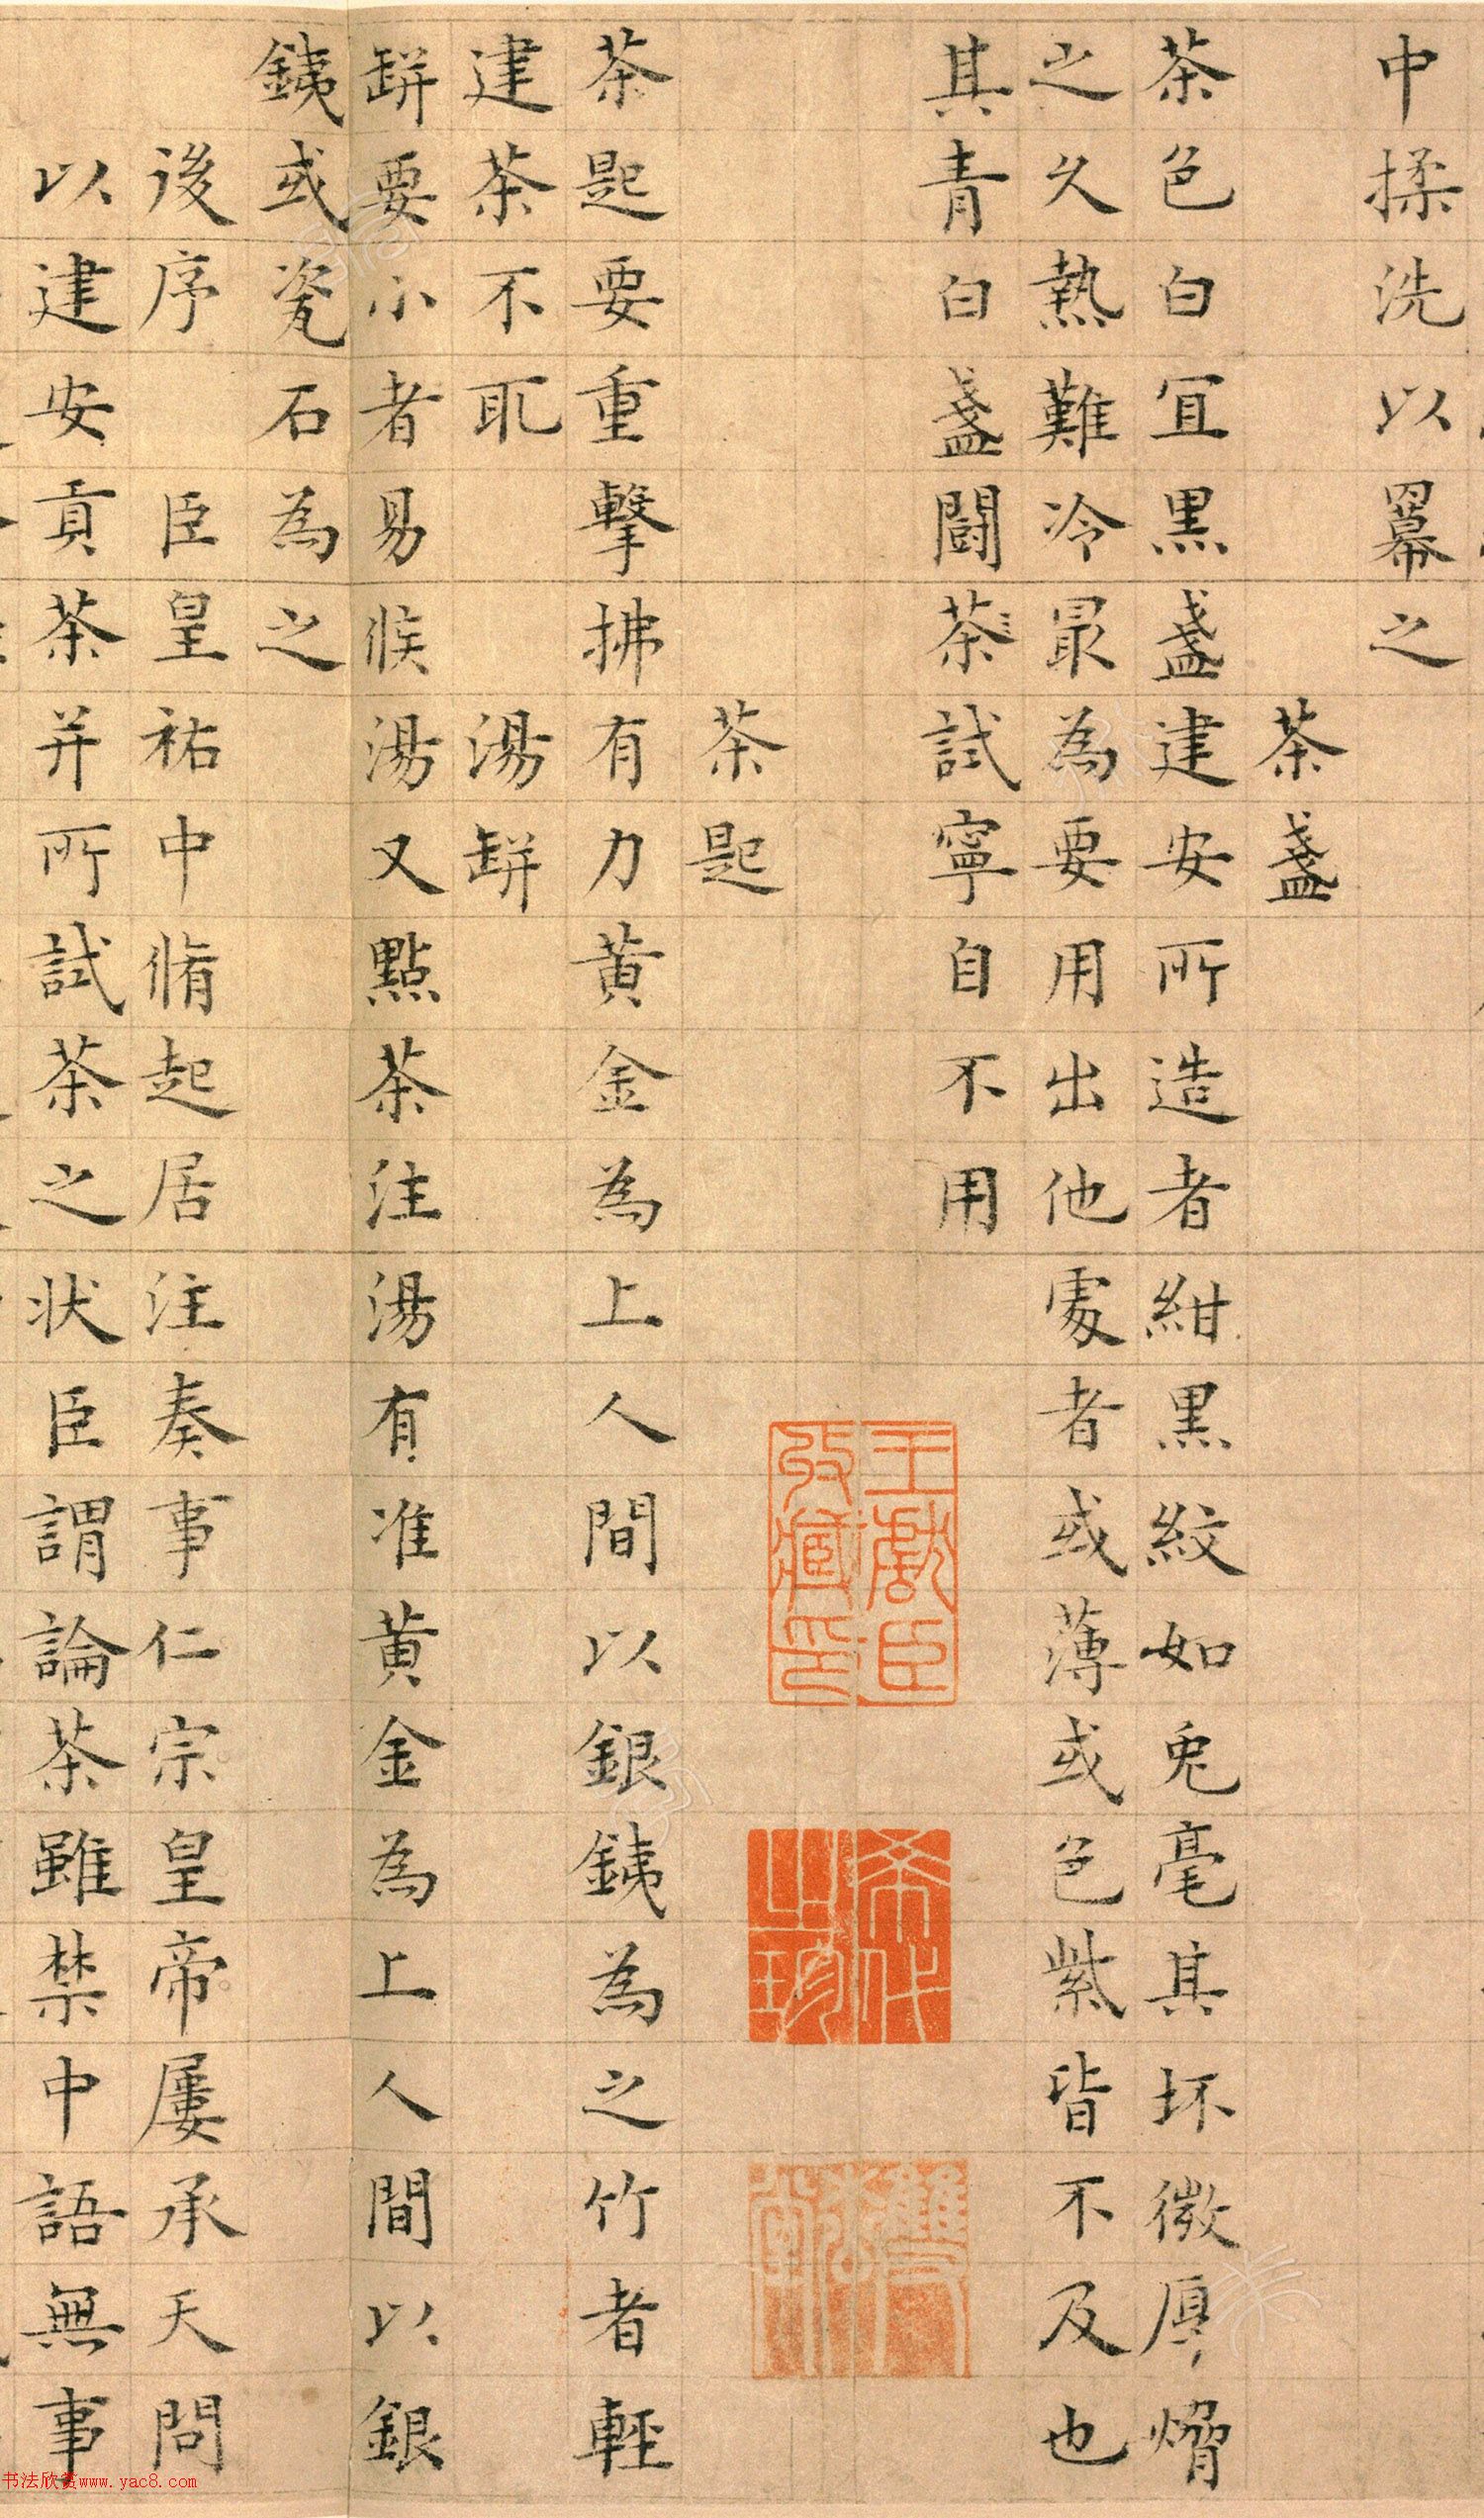 中揉洗以羃之
茶盞
茶色白宜黒盞建安所造者紺黒紋如兔毫其坯微厚熁
之久熱難冷最為要用出他處者或薄或色紫皆不及也
其青白盞鬪茶試寧自不用
茶匙
茶匙要重擊拂有力黃金為上人間以銀鐵為之竹者輕
建茶不取
湯缾
缾要小者易候湯又點茶注湯有准黃金為上人間以銀
鐵或瓷石為之
後序
臣皇祐中脩起居注奏事仁宗皇帝屢承天問
以建安貢茶并所試茶之状臣謂論茶雖禁中語無事
王獻臣收藏印
希代之珍
书法欣赏www.yac8.com